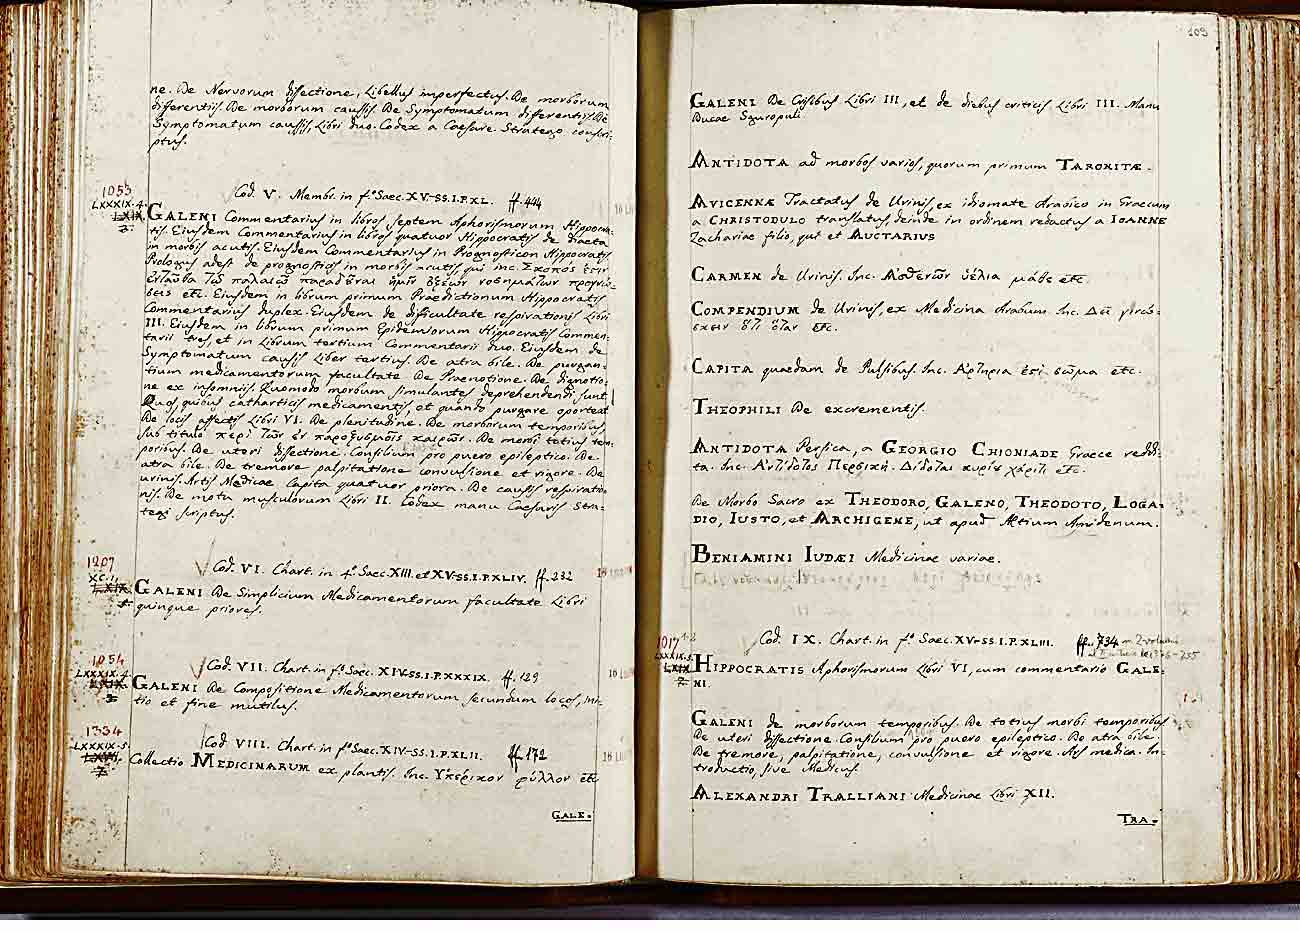 ne. De Nervorum dissectione, Libellus imperfectus. De morborum
differentiis. De morborum caussis. De Symptomatum differentiis. De
Symptomatum caussis, Libri duo. Codex a Caesare Stratego conscri-
ptus.
1053
LXXXIX.4.
LXIX.
2.
Cod. V. Membr. in f.º Saec. XV. SS. I. P. XL. ff. 444
GALENI Commentarius in libros septem Aphorismorum Hippocra-
tis. Eiusdem Commentarius in libros quatuor Hippocratis de diaeta
in morbis acutis. Eiusdem Commentarius in Prognosticon Hippocratis
Prologus adest de prognosticis in morbis acutis, qui inc. Σκοπός ἐστιν
ἐνταῦθα τῷ παλαιῷ παραδεῖναι ἡμῖν ὀξέων νοσημάτων προγνώ-
σεις etc. Eiusdem in librum primum Praedictionum Hippocratis
Commentarius duplex. Eiusdem de difficultate respirationis Libri
III. Eiusdem in librum primum Epidemiorum Hippocratis Commen-
tarii tres, et in Librum tertium Commentarii duo. Eiusdem de
Symptomatum caussis Liber tertius. De atra bile. De purgan-
tium medicamentorum facultate. De Praenotione. De dignotio-
ne ex insomniis. Quomodo morbum simulantes deprehendendi sunt
Quos, quibus catharticis medicamentis, et quando purgare oporteat
De locis affectis Libri VI. De plenitudine. De morborum temporibus,
sub titulo περὶ τῶν ἐν παροξυσμοῖς καιρῶν. De morbi totius tem-
poribus. De uteri dissectione. Consilium pro puero epileptico. De
atra bile. De tremore palpitatione convulsione et rigore. De
urinis. Artis Medicae Capita quatuor priora. De caussis respiratio-
nis. De motu musculorum Libri II. Codex manu Caesaris Stra-
tegi scriptus.
1207
XC.
LXIX.
Cod. VI. Chart. in 4.º Saec. XIII. et XV. SS. I. P. XLIV. ff. 232
GALENI De Simplicium Medicamentorum facultate Libri
quinque priores.
1054
LXXXIX.4.
LXIX.
Cod. VII. Chart. in f.º Saec. XIV. SS. I. P. XXXIX. ff. 129
GALENI De Compositione Medicamentorum secundum locos, ini-
tio et fine mutilus.
1334
LXXXIX.5.
Cod. VIII. Chart. in f.º Saec. XIV. SS. I. P. XLII. ff. 172
Collectio MEDICINARUM ex plantis. Inc. Ὑπέρικον φύλλον etc
GALE-
109
GALENI De Crisibus Libri III, et de diebus criticis Libri III. Manu
Ducae Sguropuli
ANTIDOTA ad morbos varios, quorum primum TARONITAE.
AVICENNAE Tractatus de Urinis, ex idiomate Arabico in Graecum
a CHRISTODULO translatus, deinde in ordinem redactus a IOANNE
Zachariae filio, qui et AUCTARIUS
CARMEN de Urinis. Inc. Ἀσθενῶν ὑέλια μάθε etc.
COMPENDIUM de Urinis, ex Medicina Arabum. Inc. Δεῖ γινώ-
σκειν ὅτι ὅταν etc.
CAPITA quaedam de Pulsibus. Inc. Ἀρτηρία ἐστὶ σῶμα etc.
THEOPHILI De excrementis.
ANTIDOTA Persica, a GEORGIO CHIONIADE Graece reddi-
ta. Inc. Ἀντίδοτος Περσική. Δίδοται κυρίῳ χάριτι etc.
De Morbo Sacro ex THEODORO, GALENO, THEODOTO, LOGA-
DIO, IUSTO, et ARCHIGENE, ut apud Aetium Amidenum.
BENIAMINI IUDAEI Medicinae variae.
1017 1-2
LXXXIX.5.
LXIX
2.
Cod. IX. Chart. in f.º Saec. XV. SS. I. P. XLIII. ff. 734
HIPPOCRATIS Aphorismorum Libri VI, cum commentario GALE-
NI.
GALENI de morborum temporibus. De totius morbi temporibus
De uteri dissectione. Consilium pro puero epileptico. De atra bile.
De tremore, palpitatione, convulsione et rigore. Ars medica. In-
troductio, sive Medicus.
ALEXANDRI TRALLIANI Medicinae Libri XII.
TRA-